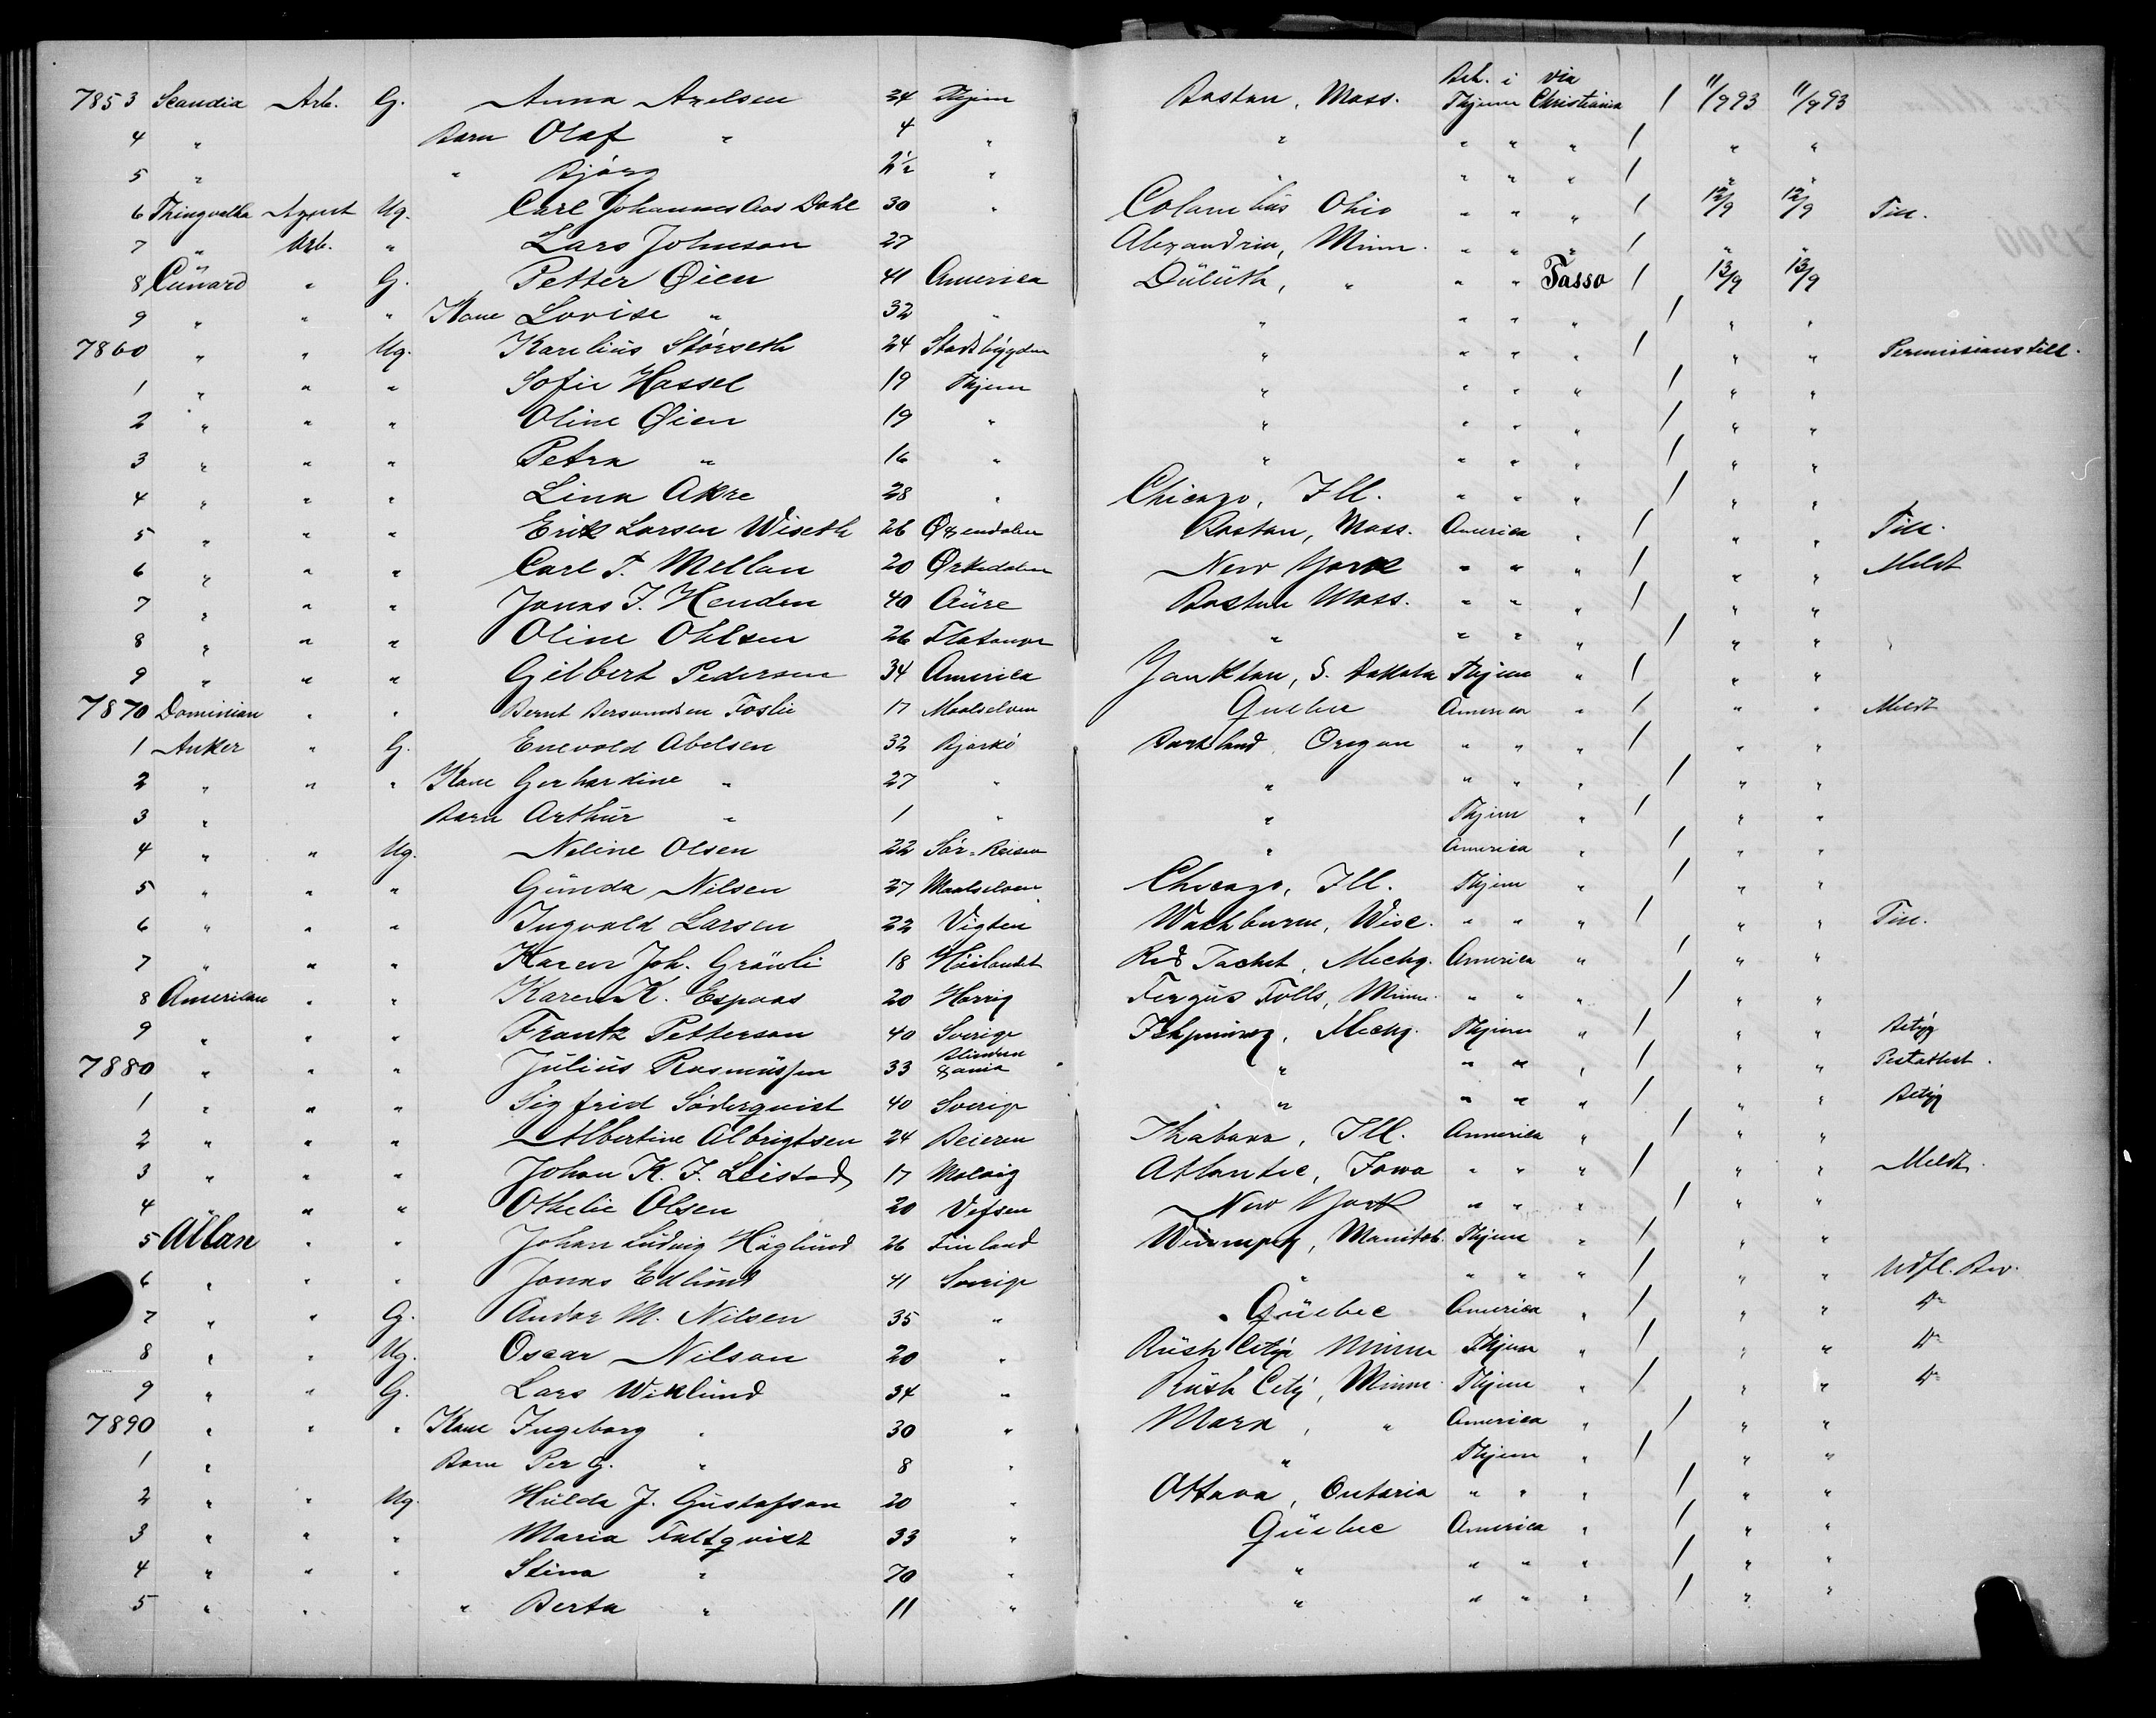 7853 Scandia Arb. G. Anna Axelsen 24 Thjem Boston, Mass. Bet. i Thjem via Christiania / 11/9 93 11/9 93
4 " Barn Olaf " 4 " " " " " / " "
5 " " Bjørg 2½ " " " " " / " "
6 Thingvalla Agent Ug. Carl Johannes Aas Dahl 30 " Columbus Ohio " " " / 12/9 12/9 Till.
7 " Arb. " Lars Johnson 27 Alexandria, Minn. " " " / " "
8 Cunard " G. Petter Øien 41 America Duluth, " " " Tasso / 13/9 13/9
9 " " " Kone Lovise " 32 " " " " " / " "
7860 " " Ug. Karelius Störseth 24 Stadsbygden " " " " / " " Permissionstill.
1 " " " Sofie Hassel 19 Thjem " " " " / " "
2 " " " Oline Øien 19 " " " " " / " "
3 " " " Petra " 16 " " " " " / " "
4 " " " Lina Akre 28 " Chicago, Ill. " " " / " "
5 " " " Erik Larsen Wiseth 26 Øxendalen Boston, Mass. America " / " " Till.
6 " " " Carl T. Mellan 20 Ørkedalen New York " " " / " " Meldt
7 " " " Jonas J. Henden 40 Aure Boston Mass. " " " / " "
8 " " " Oline Ohlsen 26 Flatanger " " " " / " "
9 " " " Gilbert Pedersen 34 America Yankton, S. Dakota Thjem " / " "
7870 Dominion " " Bernt Bersvendsen Foslie 17 Maalselven Quebec America " / " " Meldt
1 Anker " G. Enevold Abelsen 32 Bjarkö Parkland, Oregon " " " / " "
2 " " " Kone Gerhardine " 27 " " " " " / " "
3 " Barn Arthur " 1 " " Thjem " / " "
4 " " Ug. Neline Olsen 22 Sör-Reisen " America " / " "
5 " " " Gunda Nilsen 27 Maalselven Chicago, Ill. Thjem " / " "
6 " " " Ingvald Larsen 22 Vigten Washburn, Wisc. " " " / " " Till.
7 " " " Karen Joh. Grönli 18 Höilandet Red Jacket, Michg. America " / " "
8 American " " Karen K. Espaas 20 Horrig Fergus Falls, Minn. " " " / " "
9 " " " Frantz Petterson 40 Sverige Ishpiming, Michg. Thjem " / " " Betyg
7880 " " " Julius Rasmussen 33 " " " " / " " Pestattest.
1 " " " Sigfrid Söderquist 40 Sverige " " " " / " " Betyg
2 " " " Albertine Albrigtsen 24 Beieren Ill. America " / " "
3 " " " Johan K. F. Leistad 17 Malvig Atlantic, Iowa " " " / " " Meldt
4 " " " Othelie Olsen 20 Vefsen New York " " " / " "
5 Allan " " Johan Ludvig Höglund 26 Finland Winnipeg, Manitob. Thjem " / " "
6 " " " Jonas Edlund 41 Sverige " " " " / " " Udfl. Bev.
7 " " G. Andor M. Nilsen 35 " Quebec America " / " " Do
8 " " Ug. Oscar Nilson 20 " Rush City Minn Thjem " / " " Do
9 " " G. Lars Wiklund 34 " Rush City, Minn. Thjem " / " " Do
7890 " " " Kone Ingeborg " 30 " Mora, " America " / " "
1 " Barn Per G. " 8 " " Thjem " / " "
2 " " Ug. Hulda J. Gustafson 20 " Ottava, Ontario " " " / " "
3 " " " Maria Faltqvist 33 " Quebec America " / " "
4 " " " Stina " 70 " " " " " / " "
5 " " " Berta " 11 " " " " " / " "